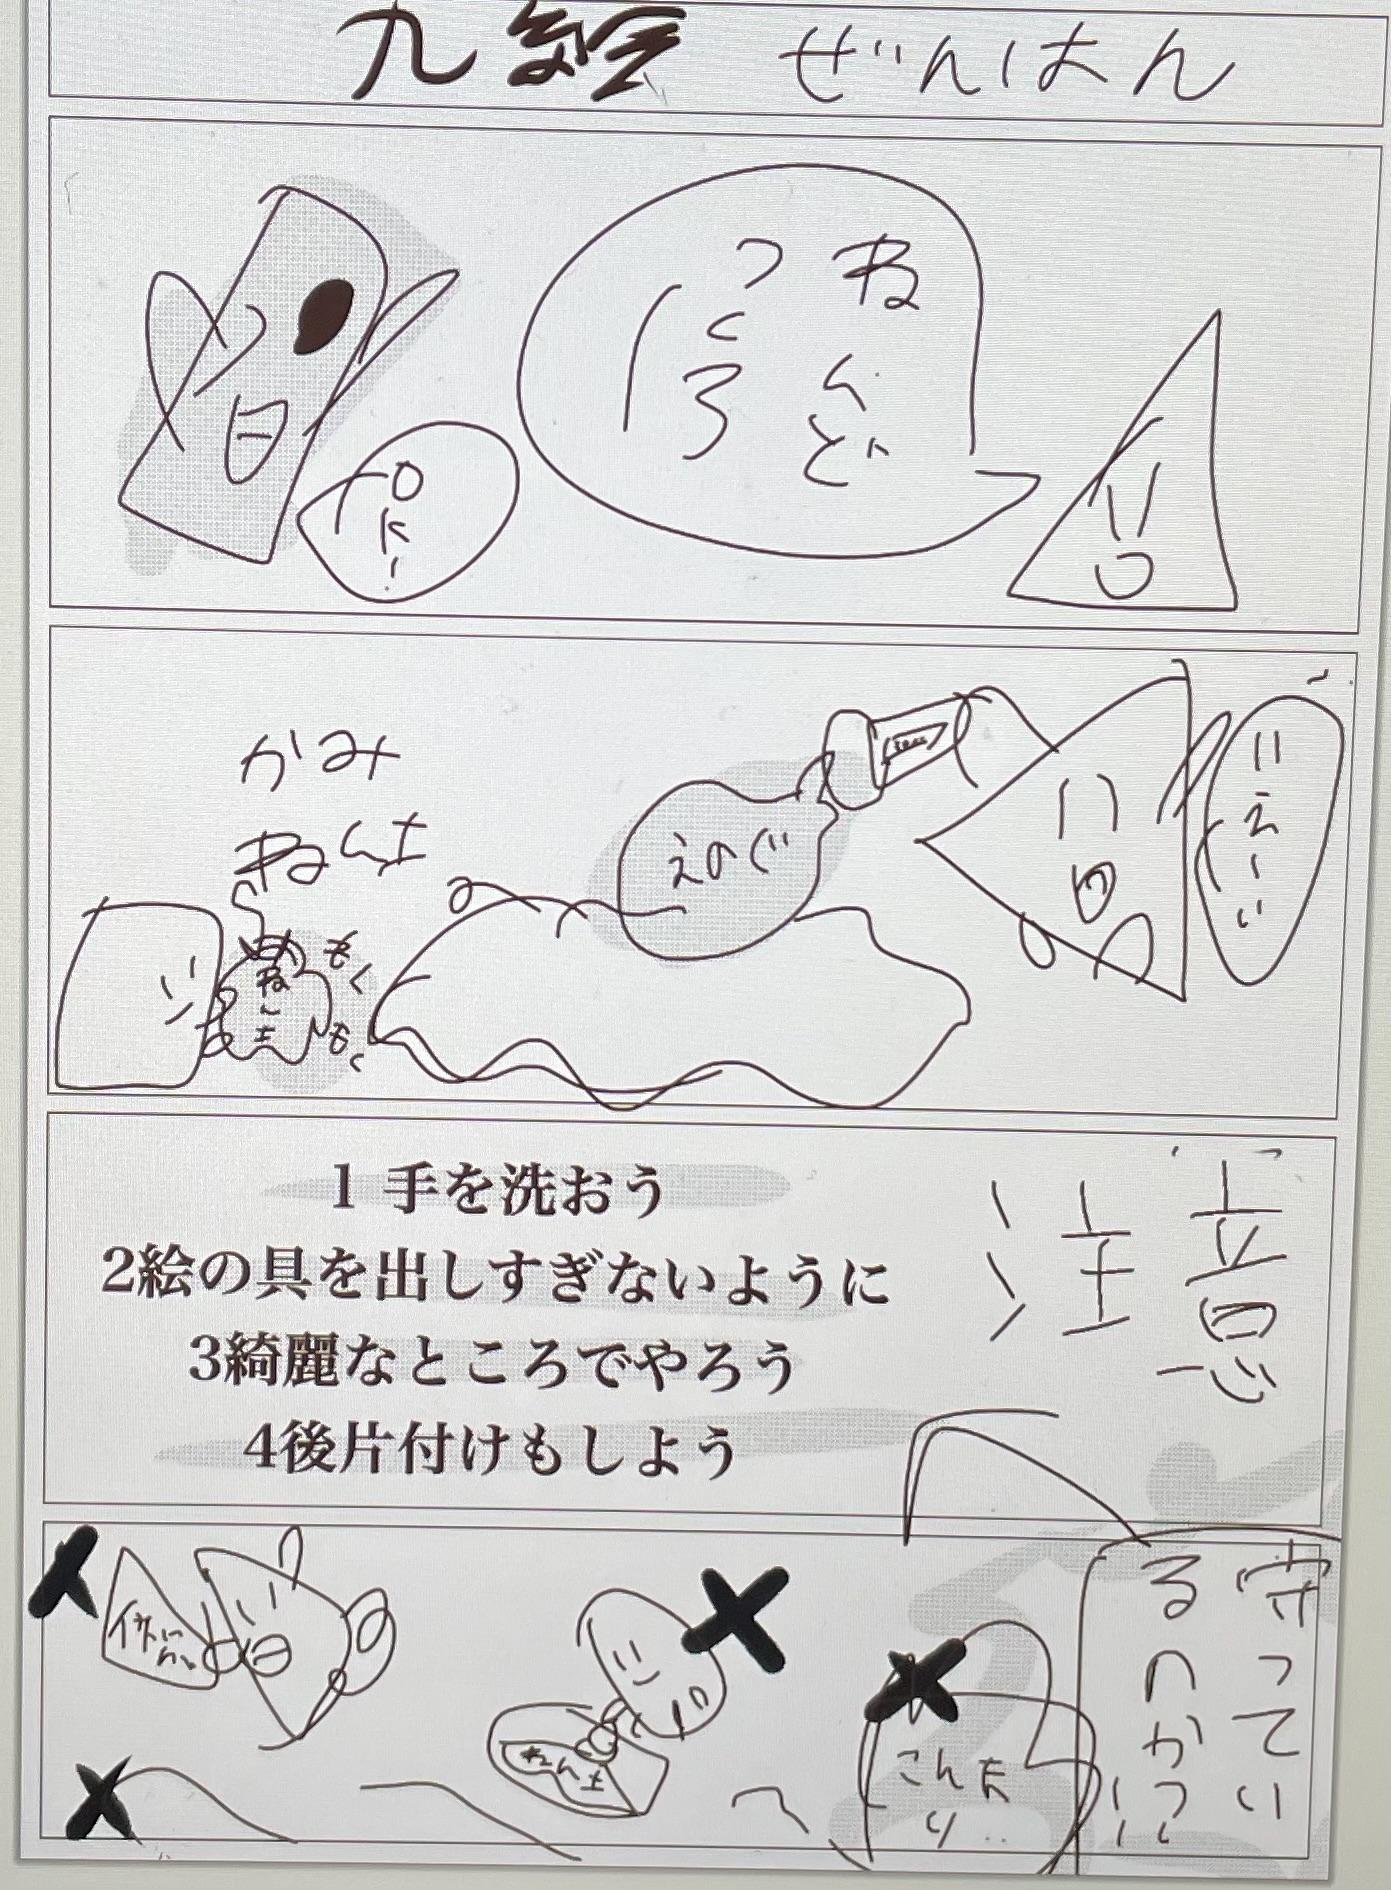 九絵 ぜんはん
ねんど
つくろ
OK!
いえーい
えのぐ
かみ
ねん土
ねん土
もく
もく
注意
1 手を洗おう
2絵の具を出しすぎないように
3綺麗なところでやろう
4後片付けもしよう
守ってい
るのか?!
ねん土